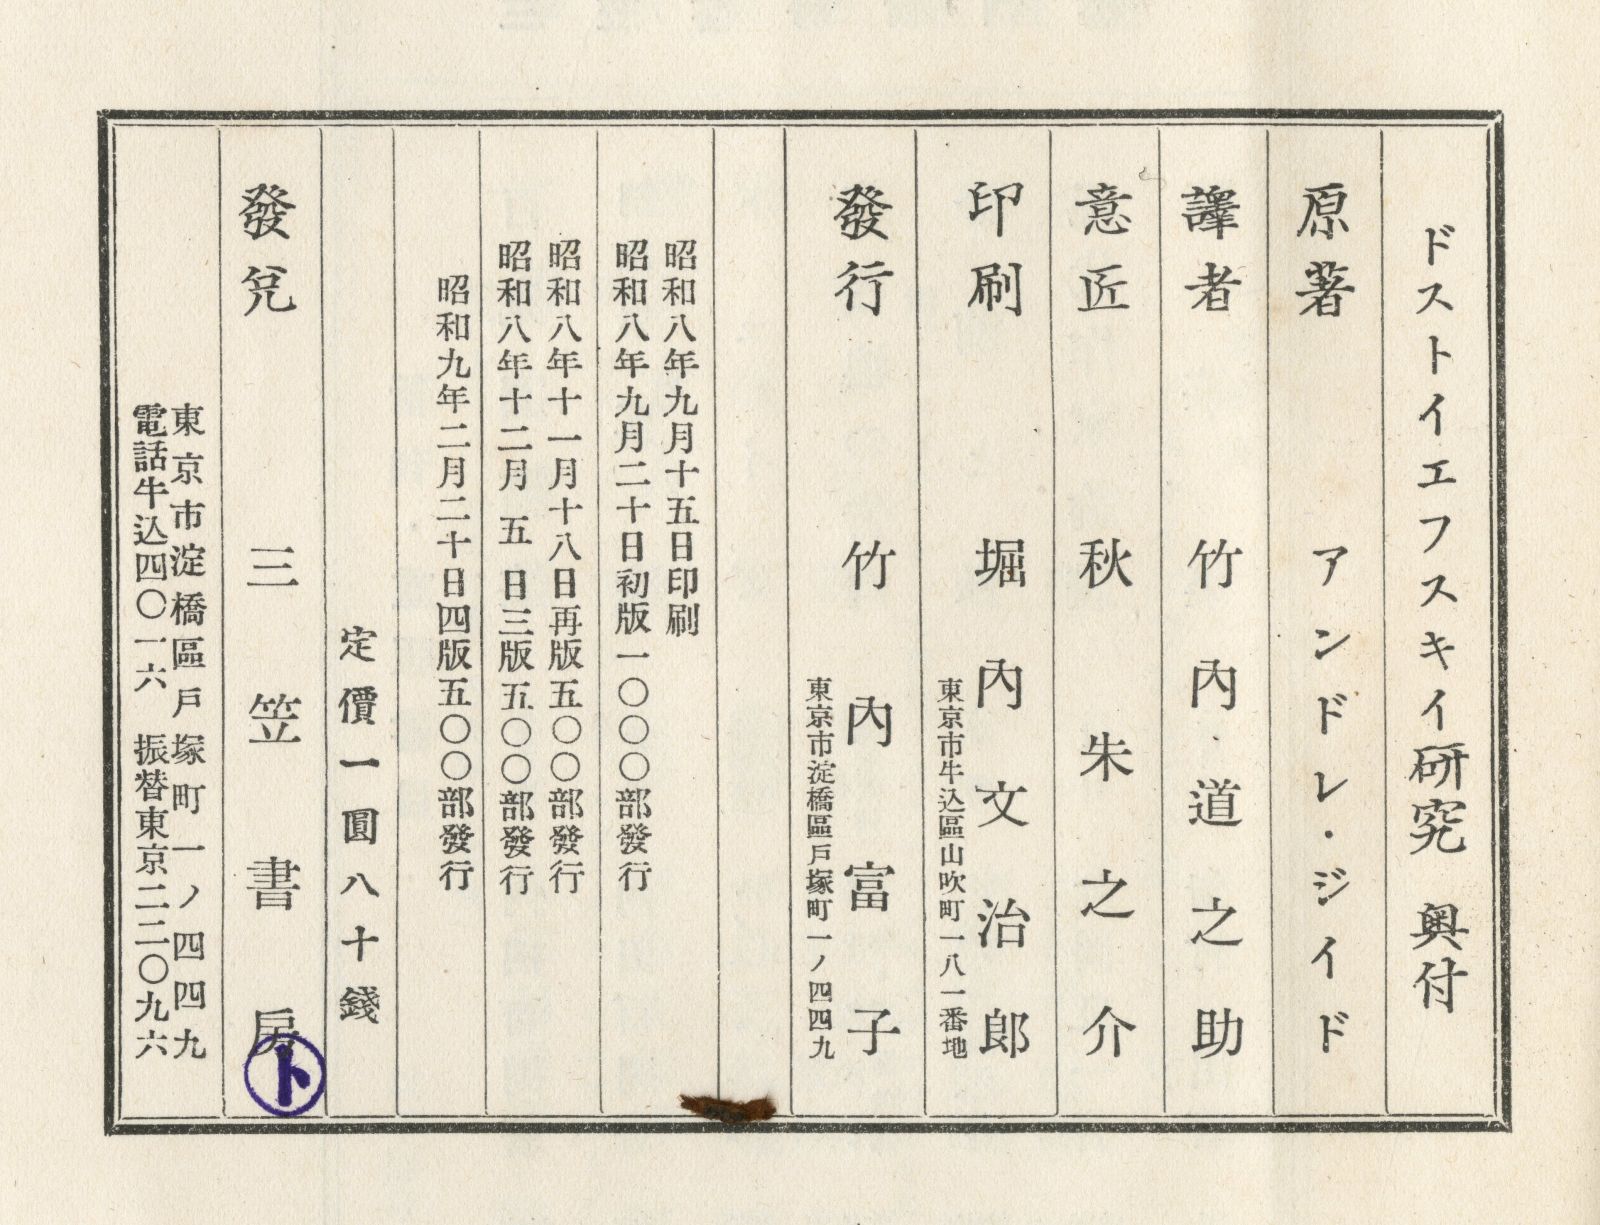 ドストイエフスキイ研究 奥付
原著 アンドレ・ジイド
譯者 竹內道之助
意匠 秋朱之介
印刷 堀內文治郎
東京市牛込區山吹町一八一番地
發行 竹內富子
東京市淀橋區戸塚町一ノ四四九
昭和八年九月十五日印刷
昭和八年九月二十日初版一〇〇〇部發行
昭和八年十一月十八日再版五〇〇部發行
昭和八年十二月五日三版五〇〇部發行
昭和九年二月二十日四版五〇〇部發行
定價一圓八十錢
發兌 三笠書房
ト
東京市淀橋區戸塚町一ノ四四九
電話牛込四〇一六 振替東京二二〇九六